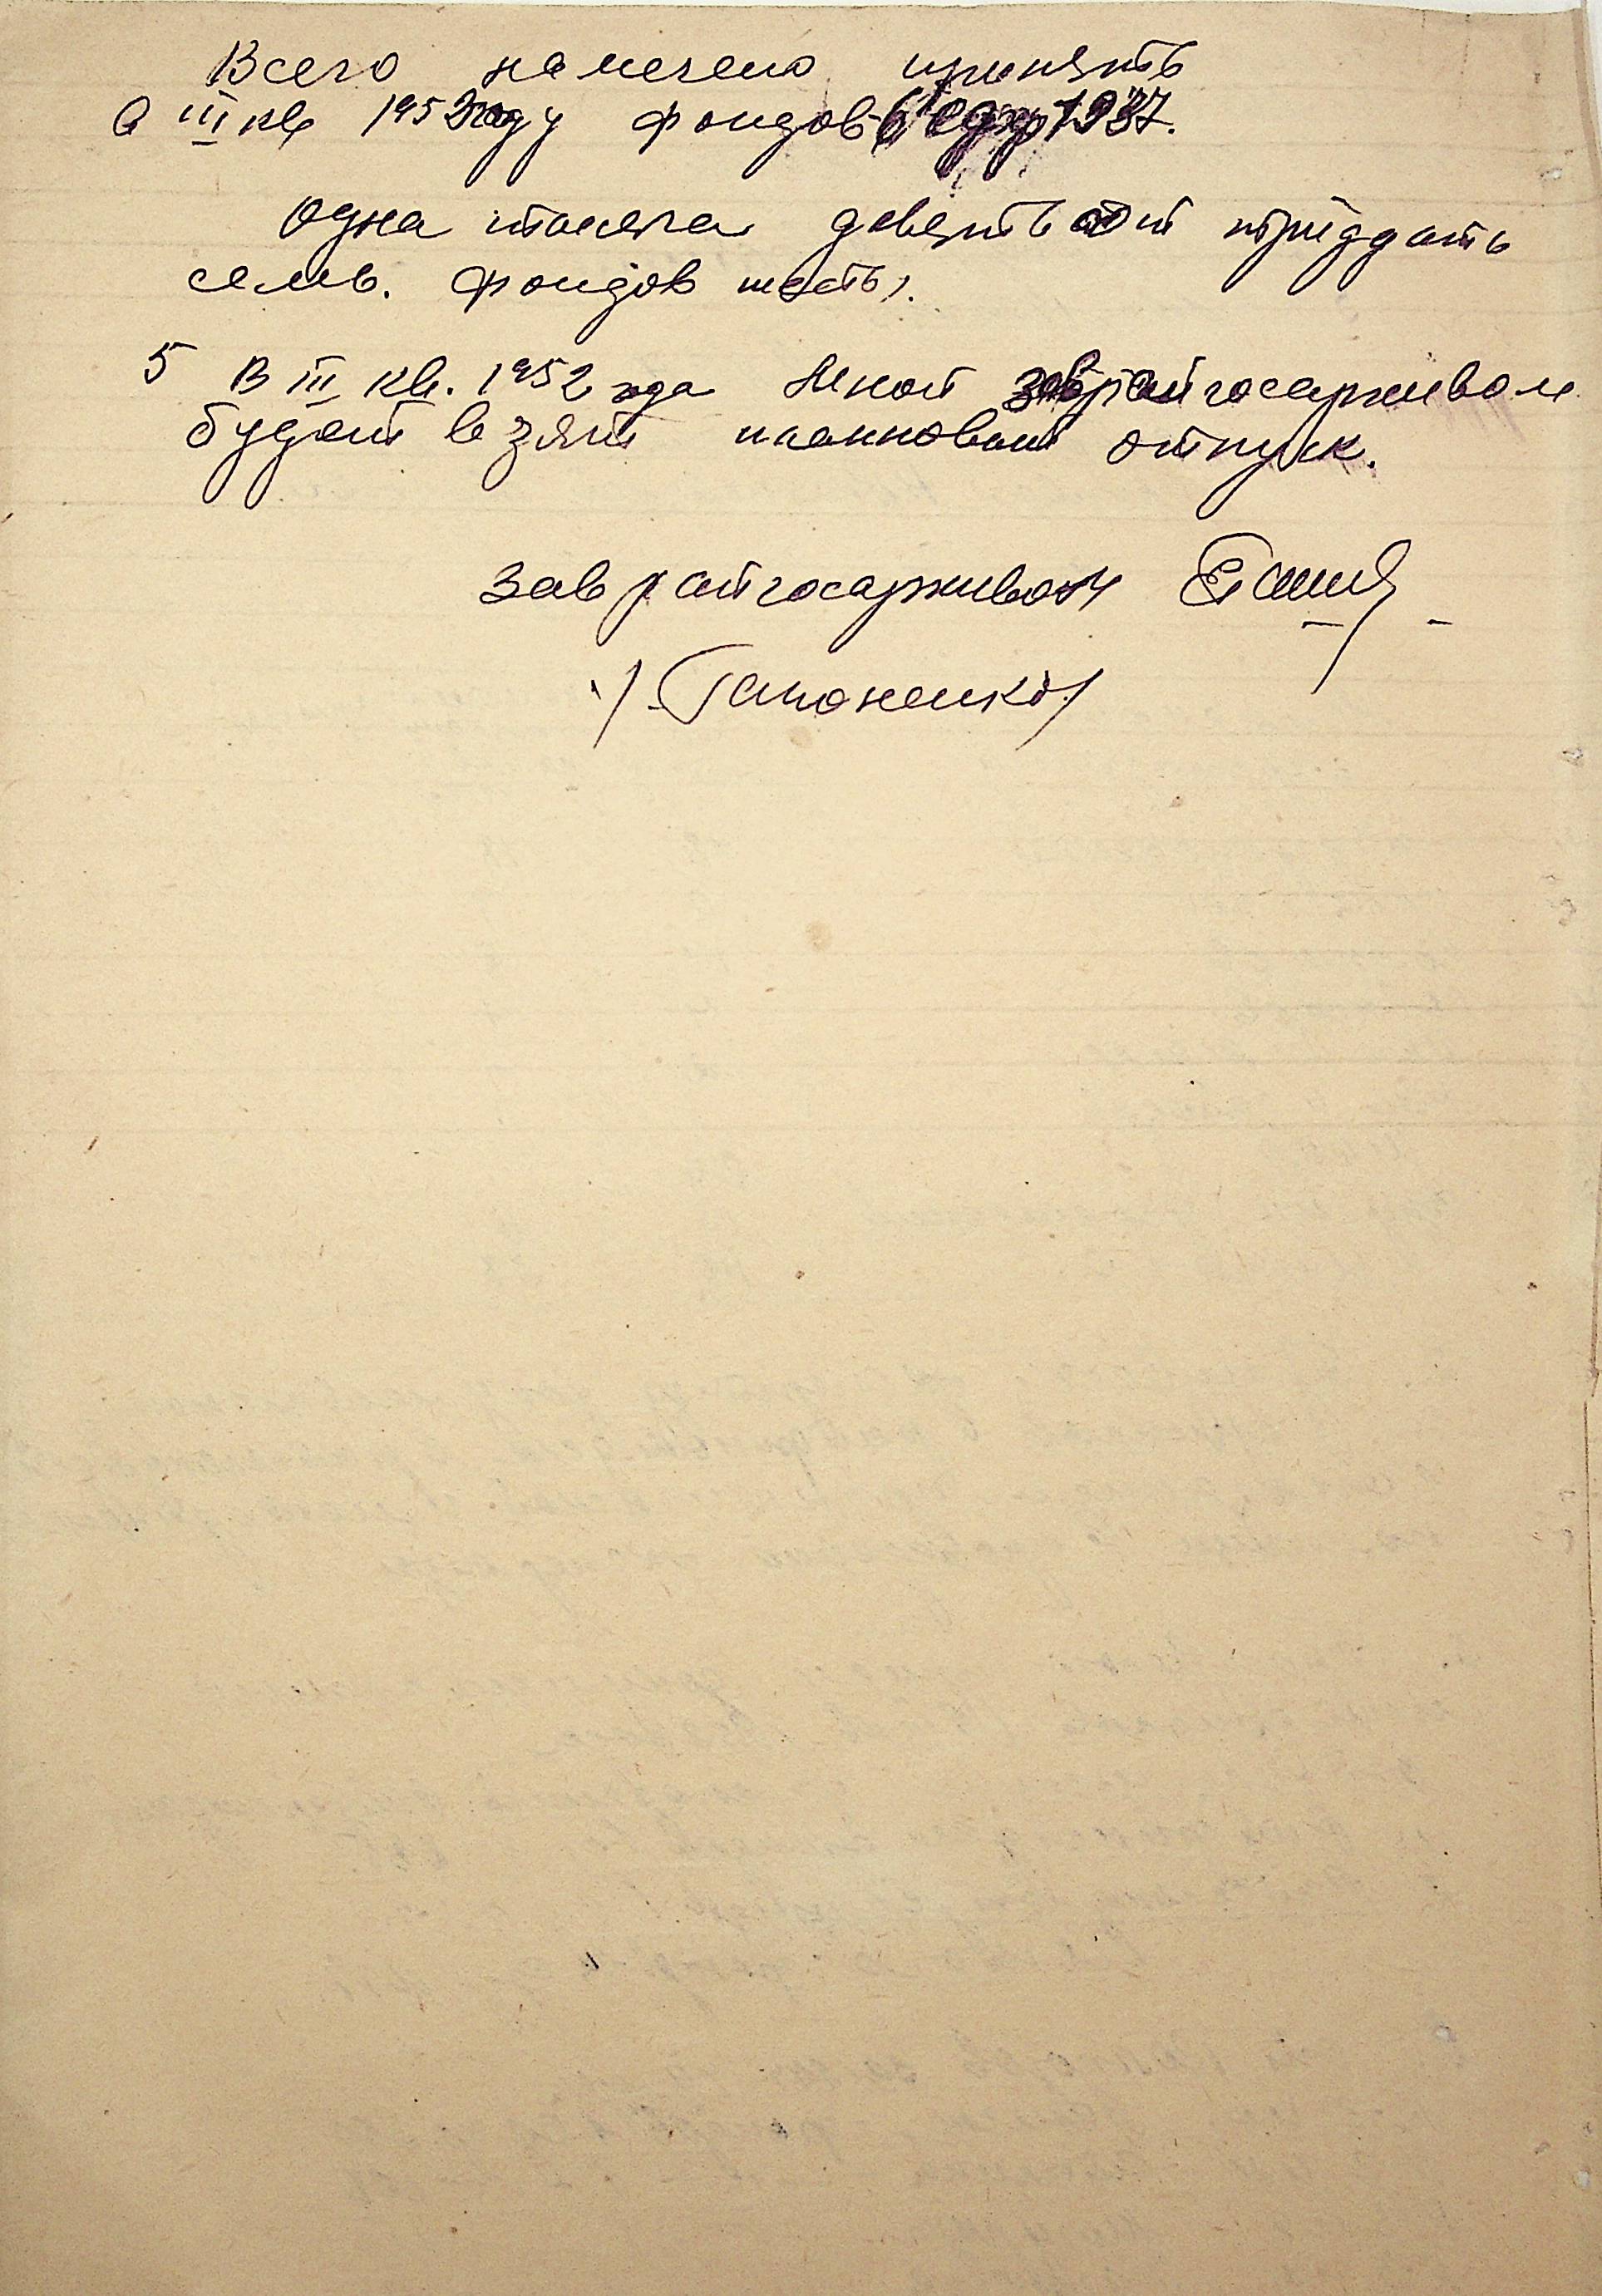 Всего намечено принять
в III кв 1952 году фондов - 6 ед хр 1937.
одна тысяча девятьсот тридцать
семь. фондов шесть).
5 В III кв. 1952 года мной заврайгосархивом
будет взят плановый отпуск.
Зав райгосархивом
/Гапоненко/